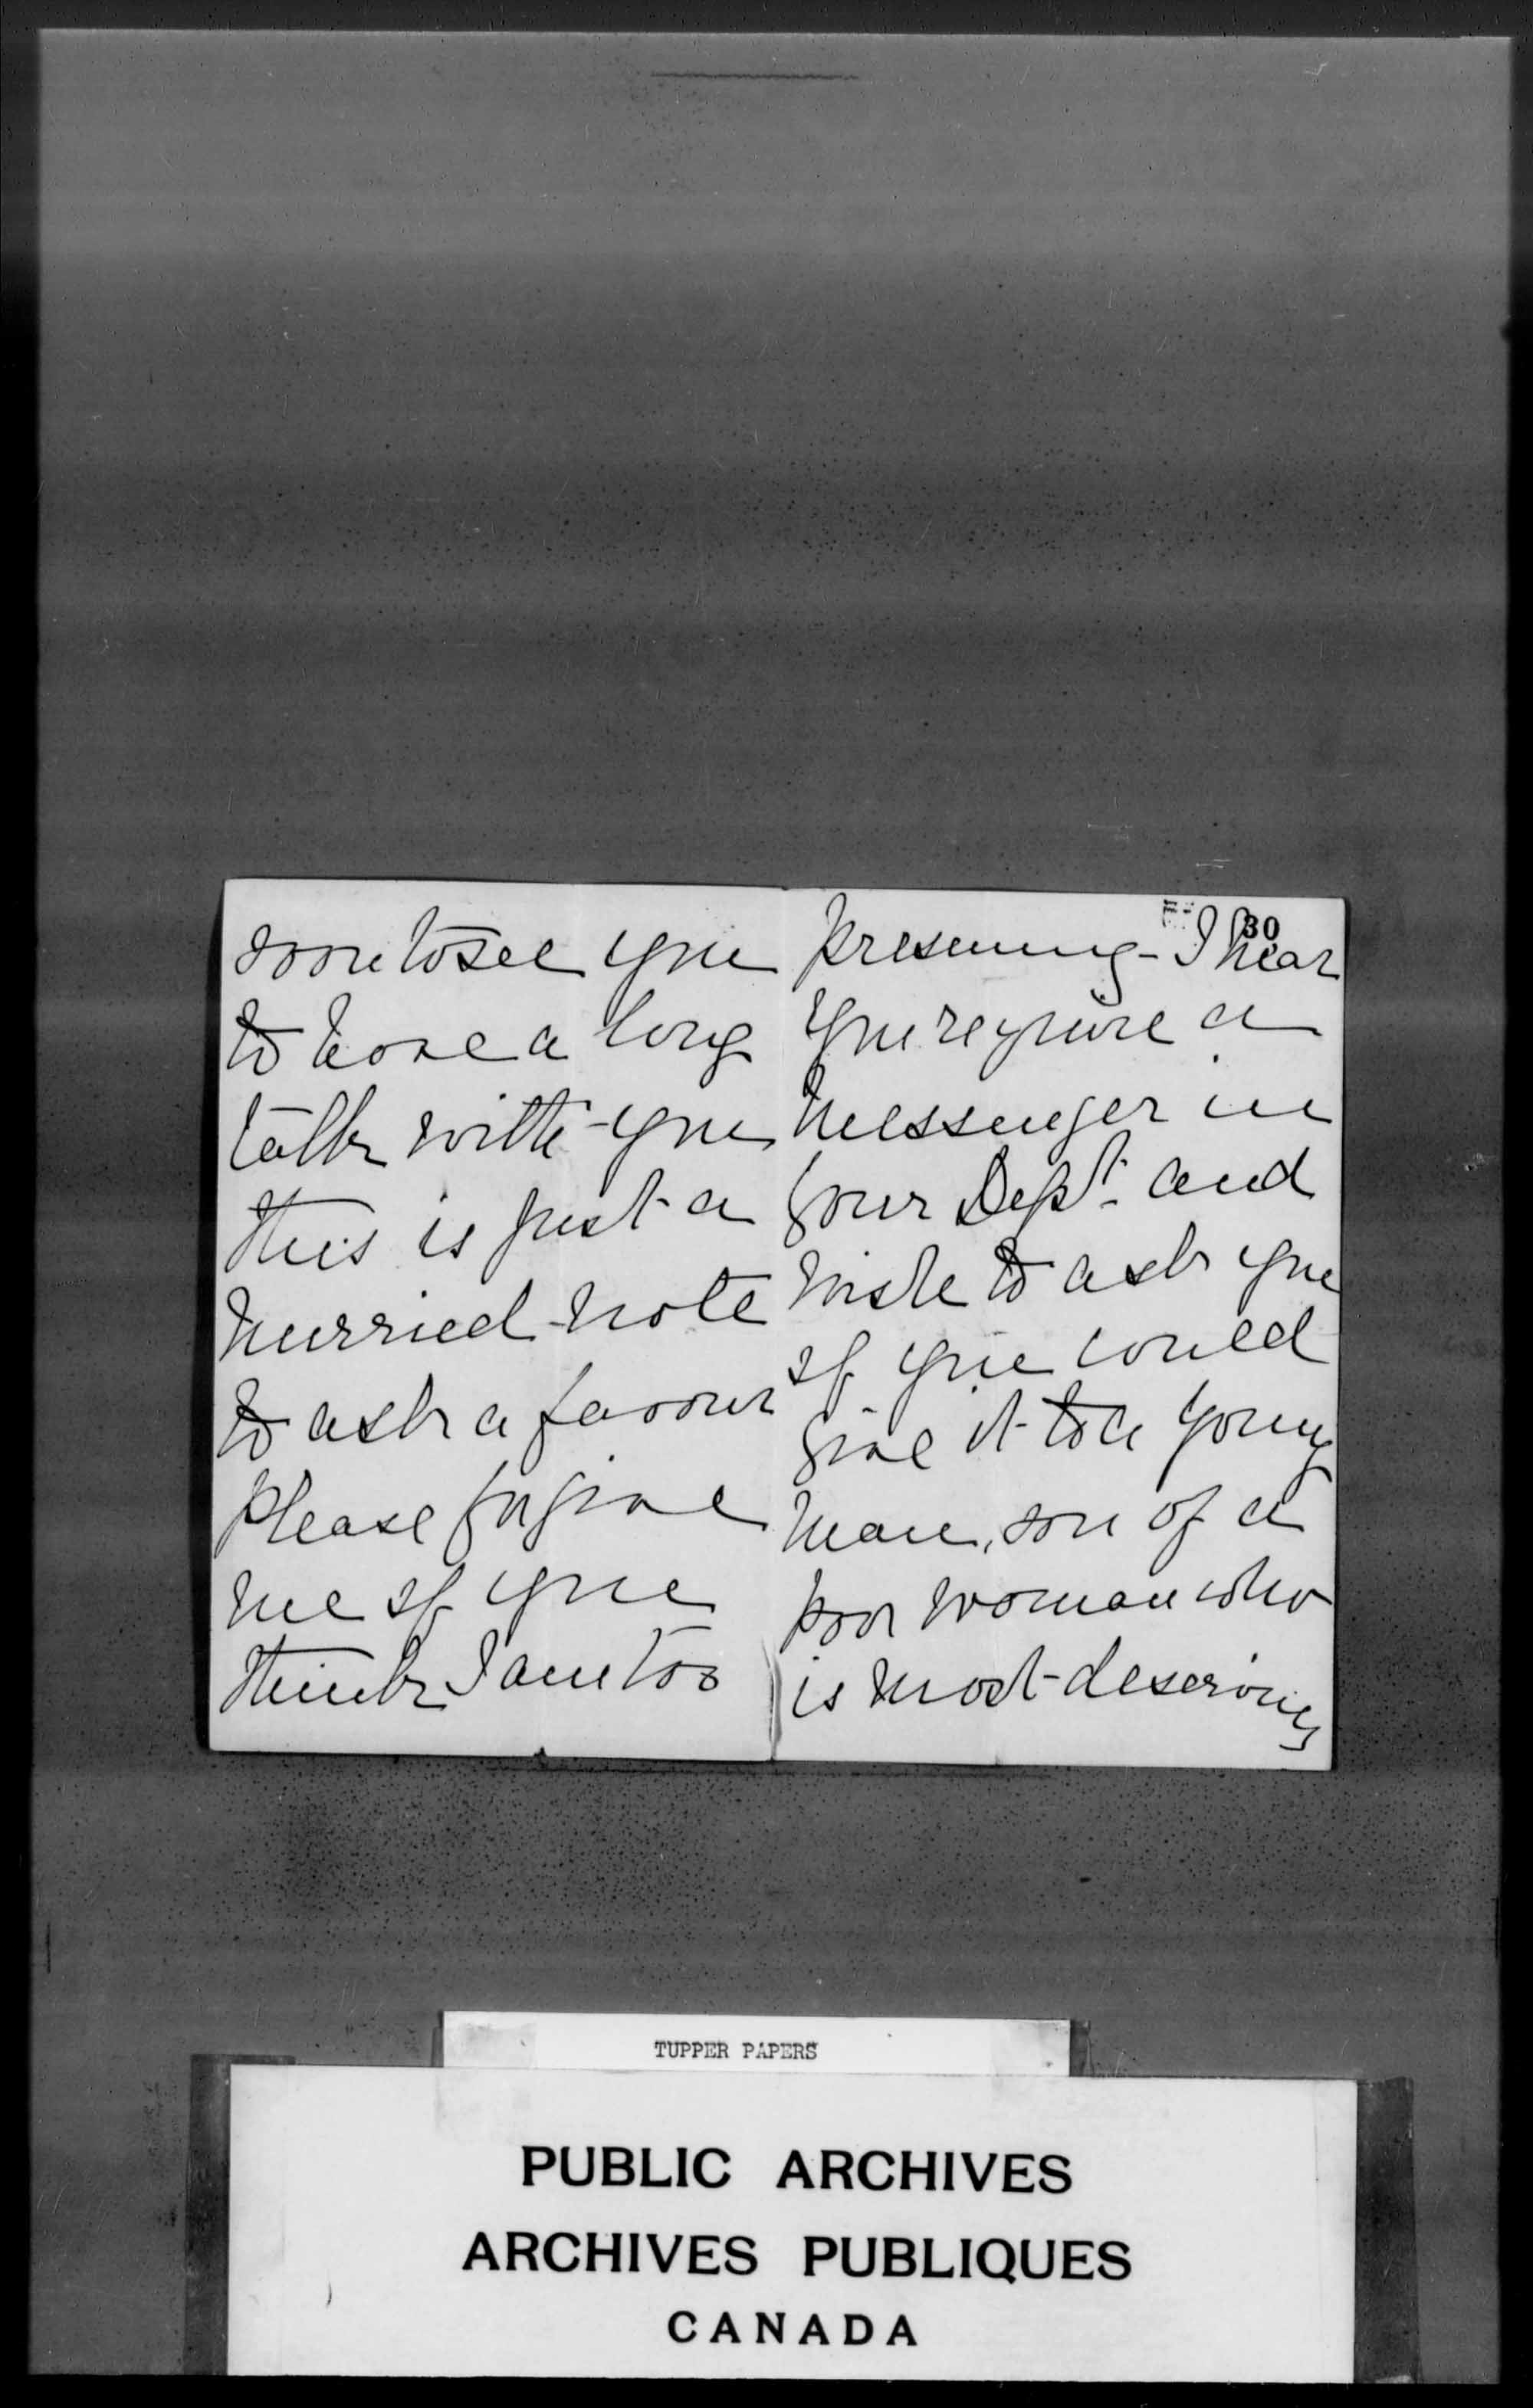 soon to see you
to have a long
talk with you
this is just a
hurried note
to ask a favour
please forgive
me if you
think I am too
30
presuming - I hear
you require a
messenger in
your Dept. and
wish to ask you
if you could
give it to a young
man, son of a
poor woman who
is most deserving
TUPPER PAPERS
PUBLIC ARCHIVES
ARCHIVES PUBLIQUES
CANADA